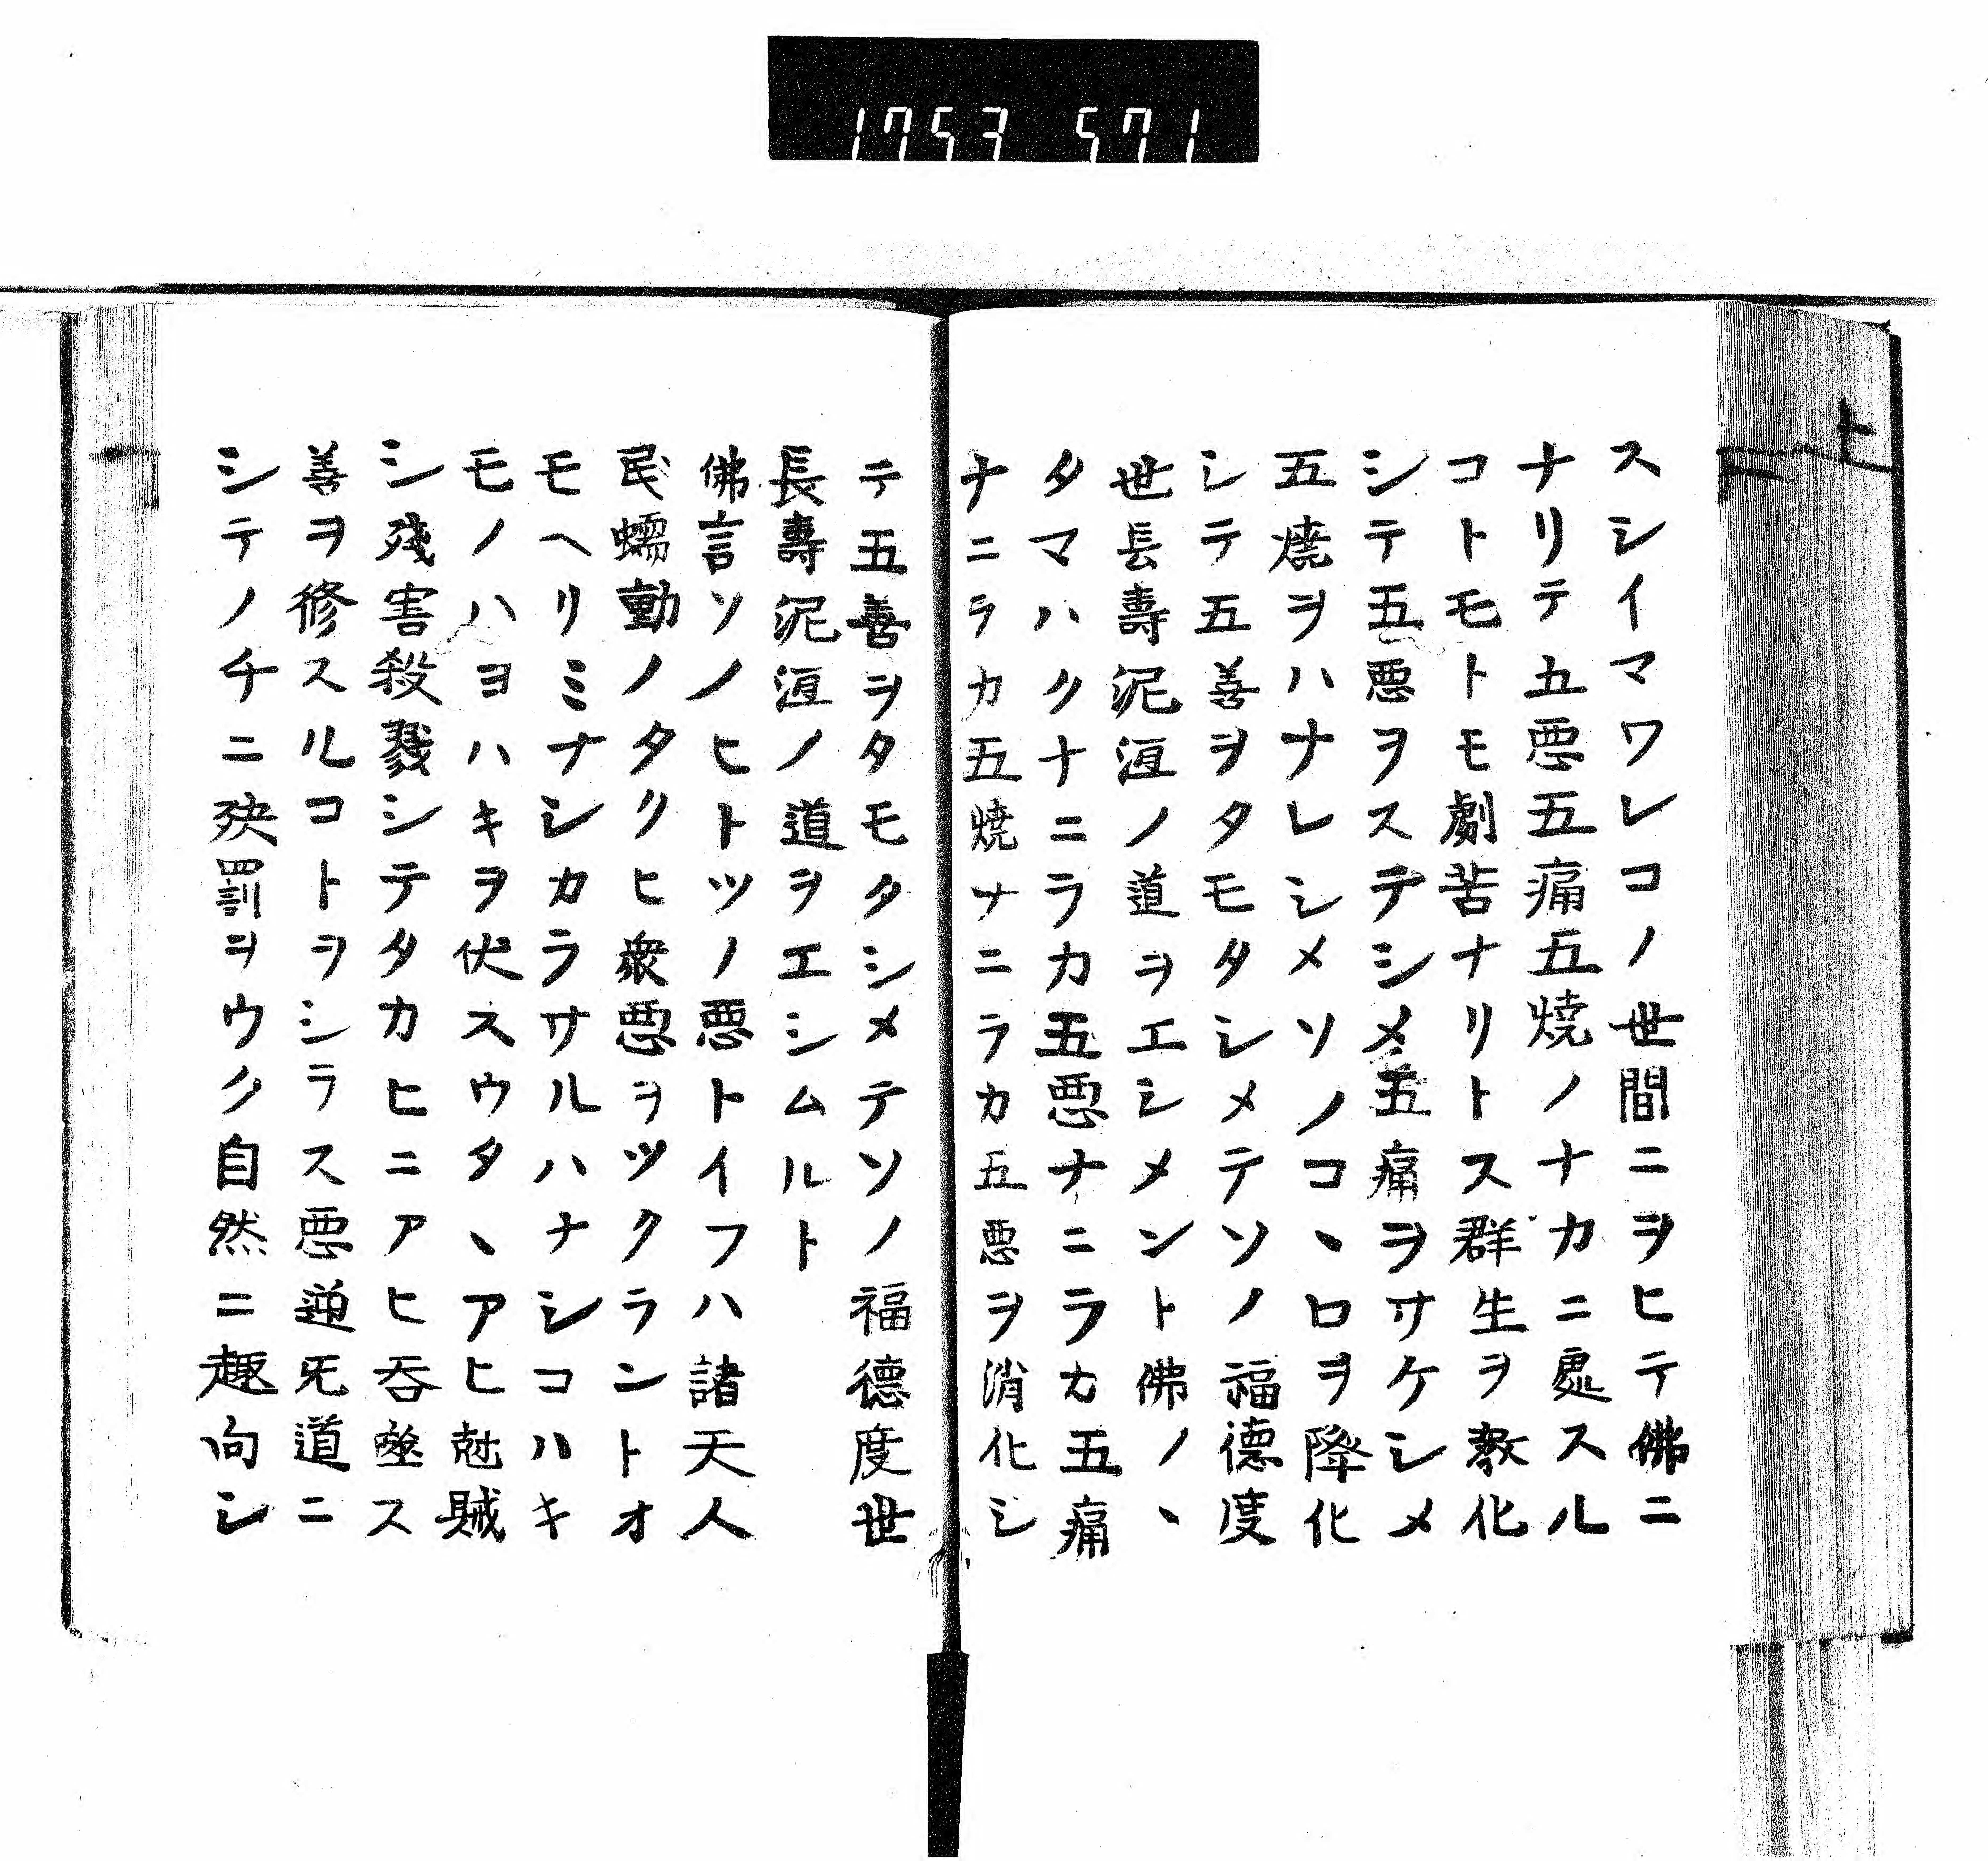 1753 571
スシイマワレコノ世間ニヲヒテ佛ニ
ナリテ五悪五痛五焼ノナカニ處スル
コトモトモ劇苦ナリトス群生ヲ教化
シテ五悪ヲステシメ五痛ヲサケシメ
五焼ヲハナレシメソノコヽロヲ降化
シテ五善ヲタモタシメテソノ福德度
世長壽泥洹ノ道ヲエシメント佛ノヽ
タマハクナニラカ五悪ナニラカ五痛
ナニラカ五焼ナニラカ五悪ヲ消化シ
テ五善ヲタモタシメテソノ福德度世
長壽泥洹ノ道ヲエシムルト
佛言ソノヒトツノ悪トイフハ諸天人
民蠕動ノタクヒ衆悪ヲツクラントオ
モヘリミナシカラサルハナシコハキ
モノハヨハキヲ伏スウタヽアヒ尅賊
シ殘害殺戮シテタカヒニアヒ呑噬ス
善ヲ修スルコトヲシラス悪逆无道ニ
シテノチニ殃罰ヲウク自然ニ趣向シ